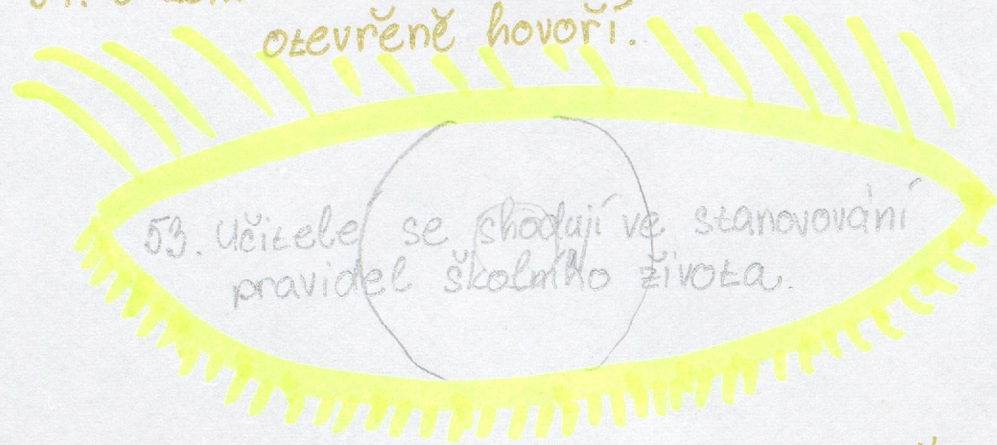 otevřeně hovoří.
53. Učitele se shodují ve stanovování
pravidel školního života.